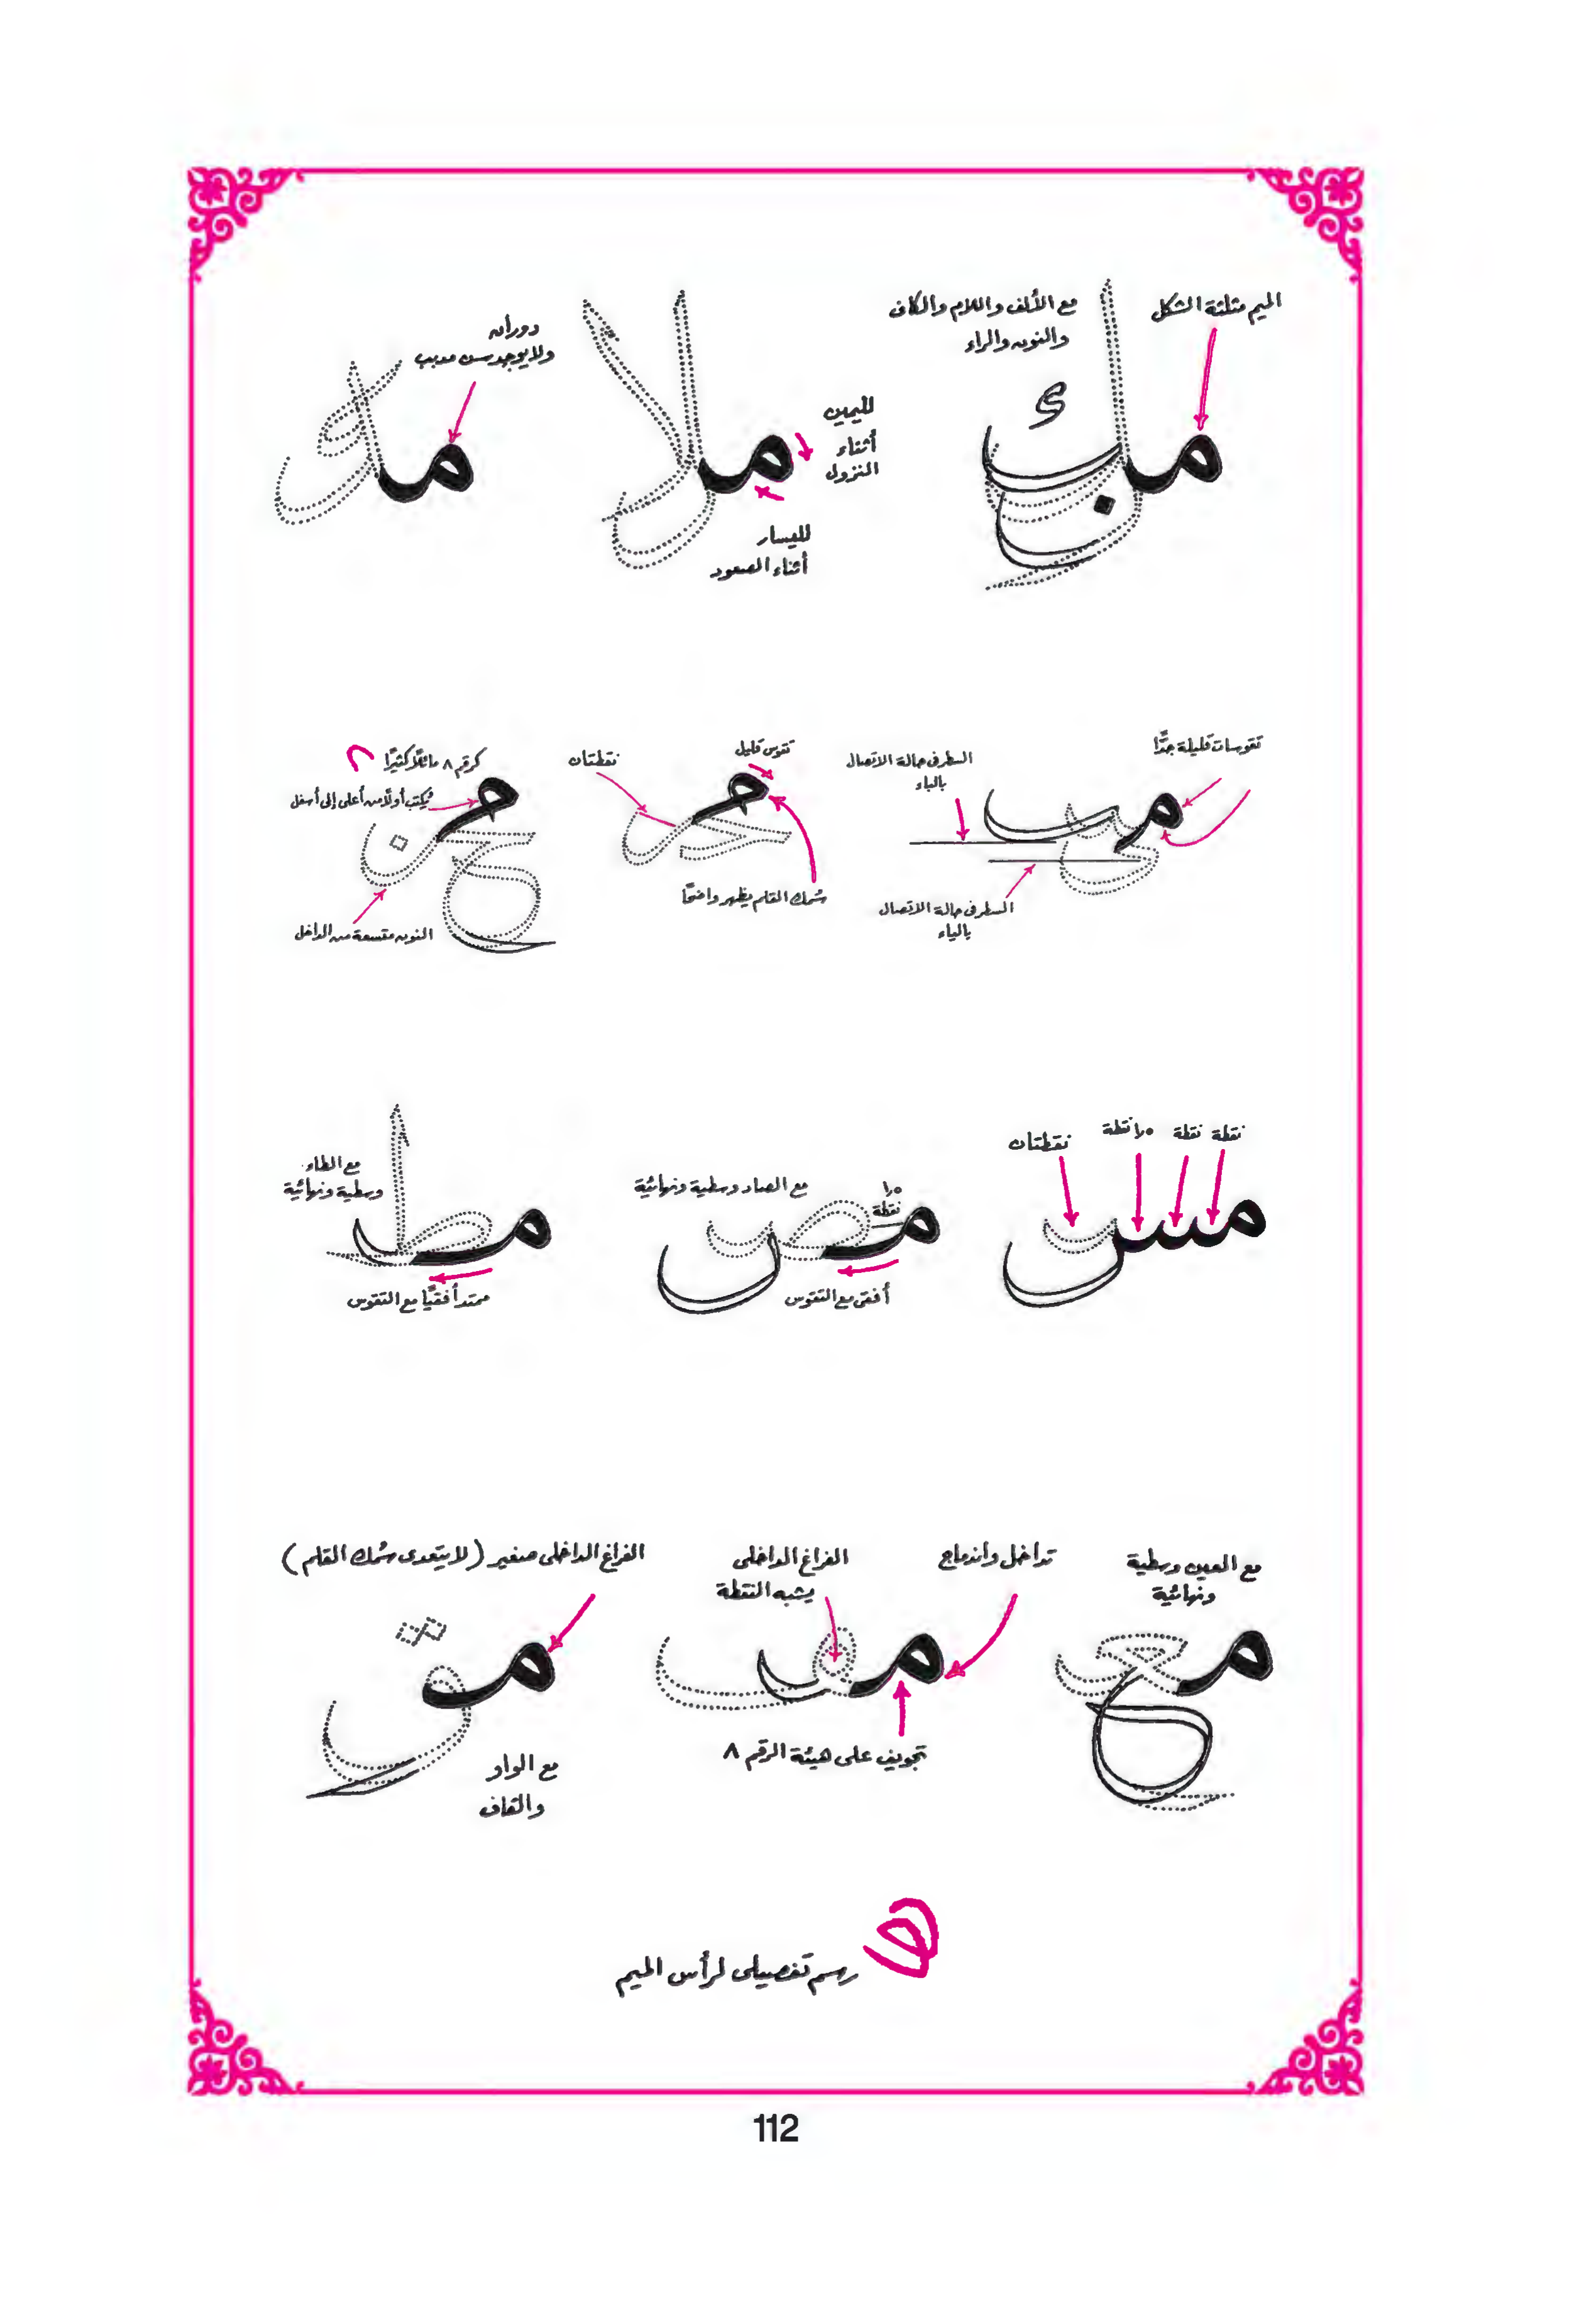 الميم مثلثة الشكل
مع الألف واللام والكاف
والنون والراء
لليمين
أثناء
النزول
لليسار
أثناء الصعود
دوران
ولا يوجد سن مدبب
تقوسات قليلة جدًّا
السطر فى حالة الاتصال
بالباء
السطر فى حالة الاتصال
بالياء
تقوس قليل
نقطتان
سُمك القلم يظهر واضحًا
كرقم ٨ مائلًا كثيرًا
يُكتب أولًا من أعلى إلى أسفل
النون متسعة من الداخل
نقطة
نقطة
١٫٥ نقطة
نقطتان
مع الصاد وسطية ونهائية
١٫٥
نقطة
أفقى مع التقوس
مع الطاء
وسطية ونهائية
ممتد أفقيًّا مع التقوس
مع العين وسطية
ونهائية
تداخل واندماج
الفراغ الداخلى
يشبه النقطة
تجويف على هيئة الرقم ٨
الفراغ الداخلى صغير (لا يتعدى سُمك القلم)
مع الواو
والقاف
رسم تفصيلى لرأس الميم
112